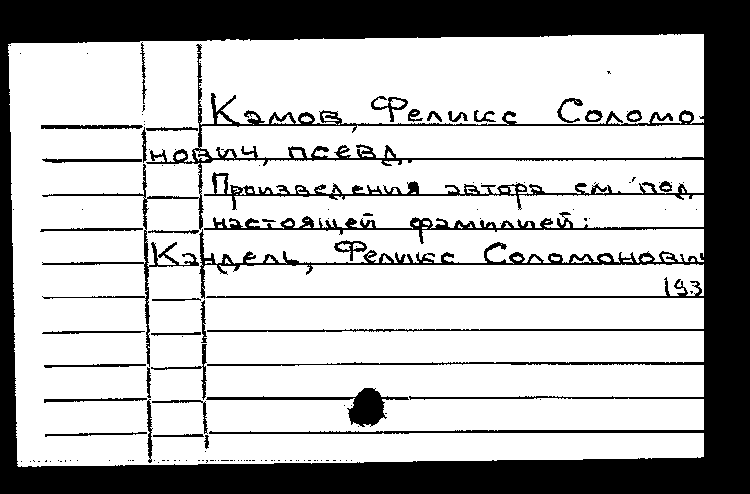 Камов, Феликс Соломо-
нович, псевд.
Произведения автора см. под
настоящей фамилией:
Кандель, Феликс Соломонович
193